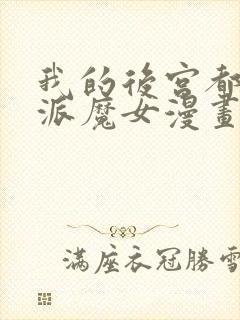 我的後宮都
派魔女漫畫
滿座衣冠勝雪